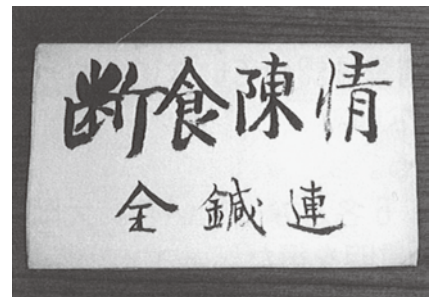 断食陳情
全鍼連